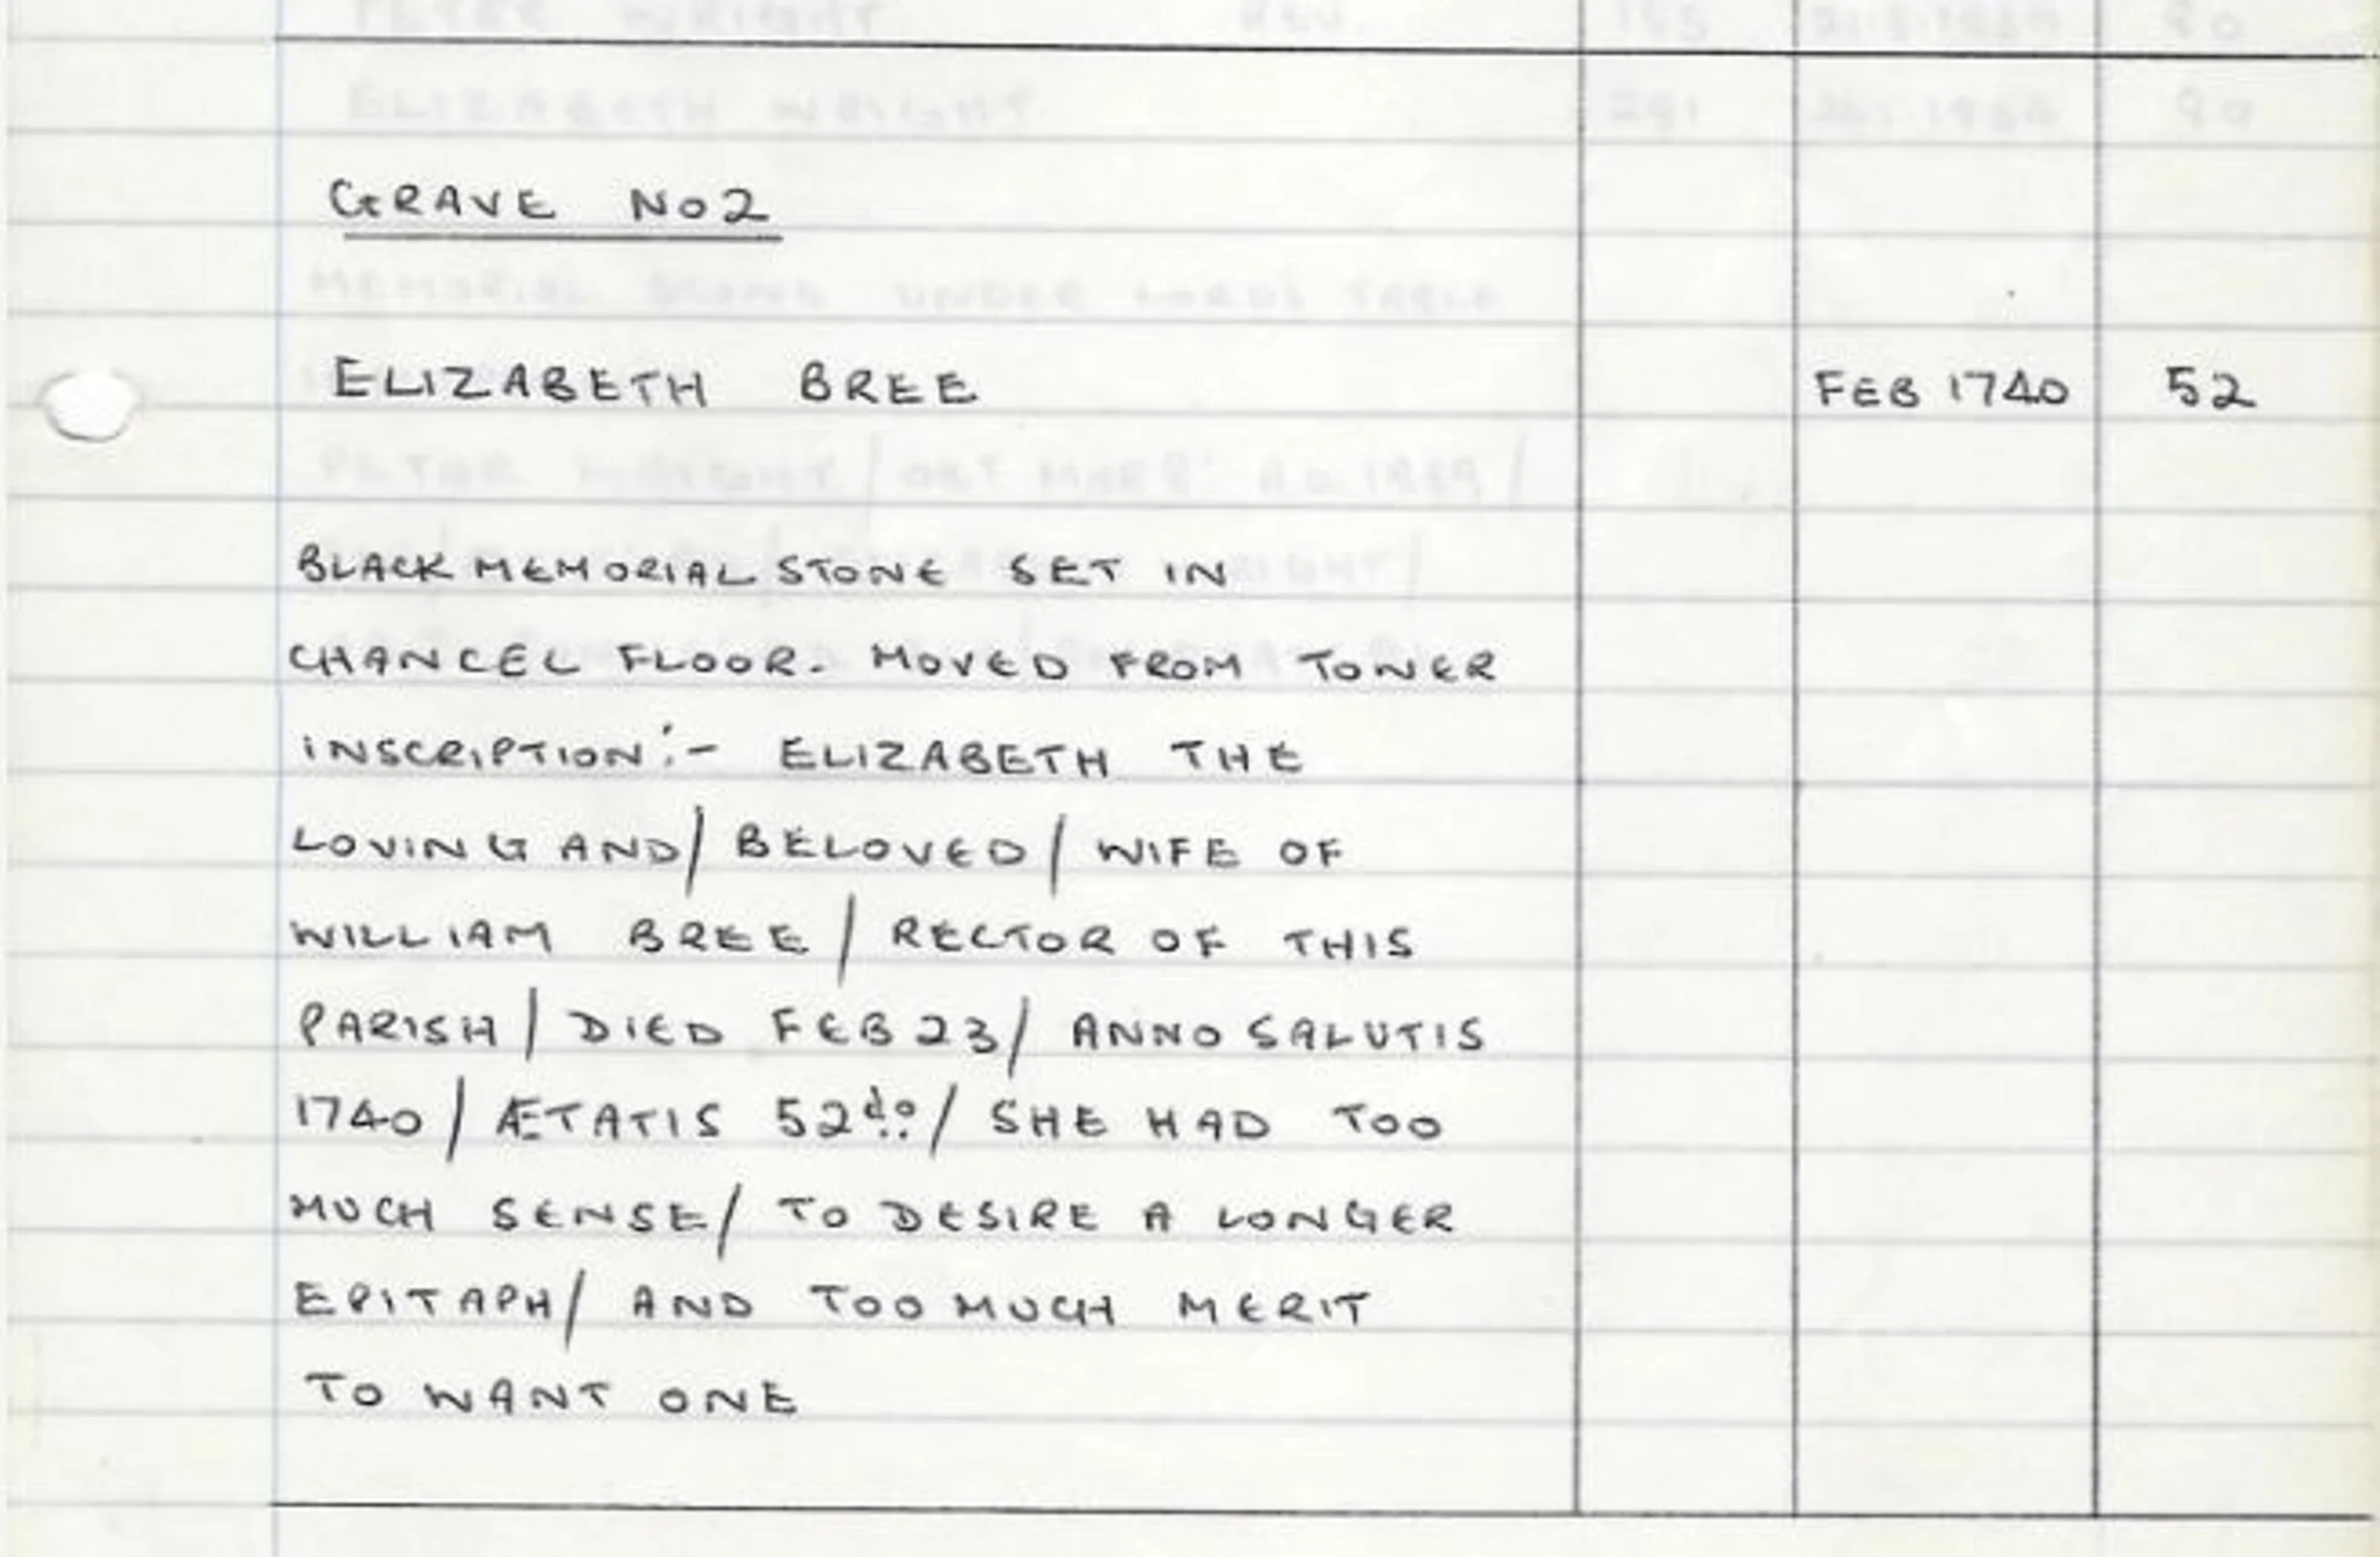 GRAVE No2
ELIZABETH BREE FEB 1740 52
BLACK MEMORIAL STONE SET IN
CHANCEL FLOOR. MOVED FROM TOWER
INSCRIPTION:- ELIZABETH THE
LOVING AND/ BELOVED/ WIFE OF
WILLIAM BREE/ RECTOR OF THIS
PARISH/ DIED FEB 23/ ANNO SALUTIS
1740/ ÆTATIS 52do/ SHE HAD TOO
MUCH SENSE/ TO DESIRE A LONGER
EPITAPH/ AND TOO MUCH MERIT
TO WANT ONE